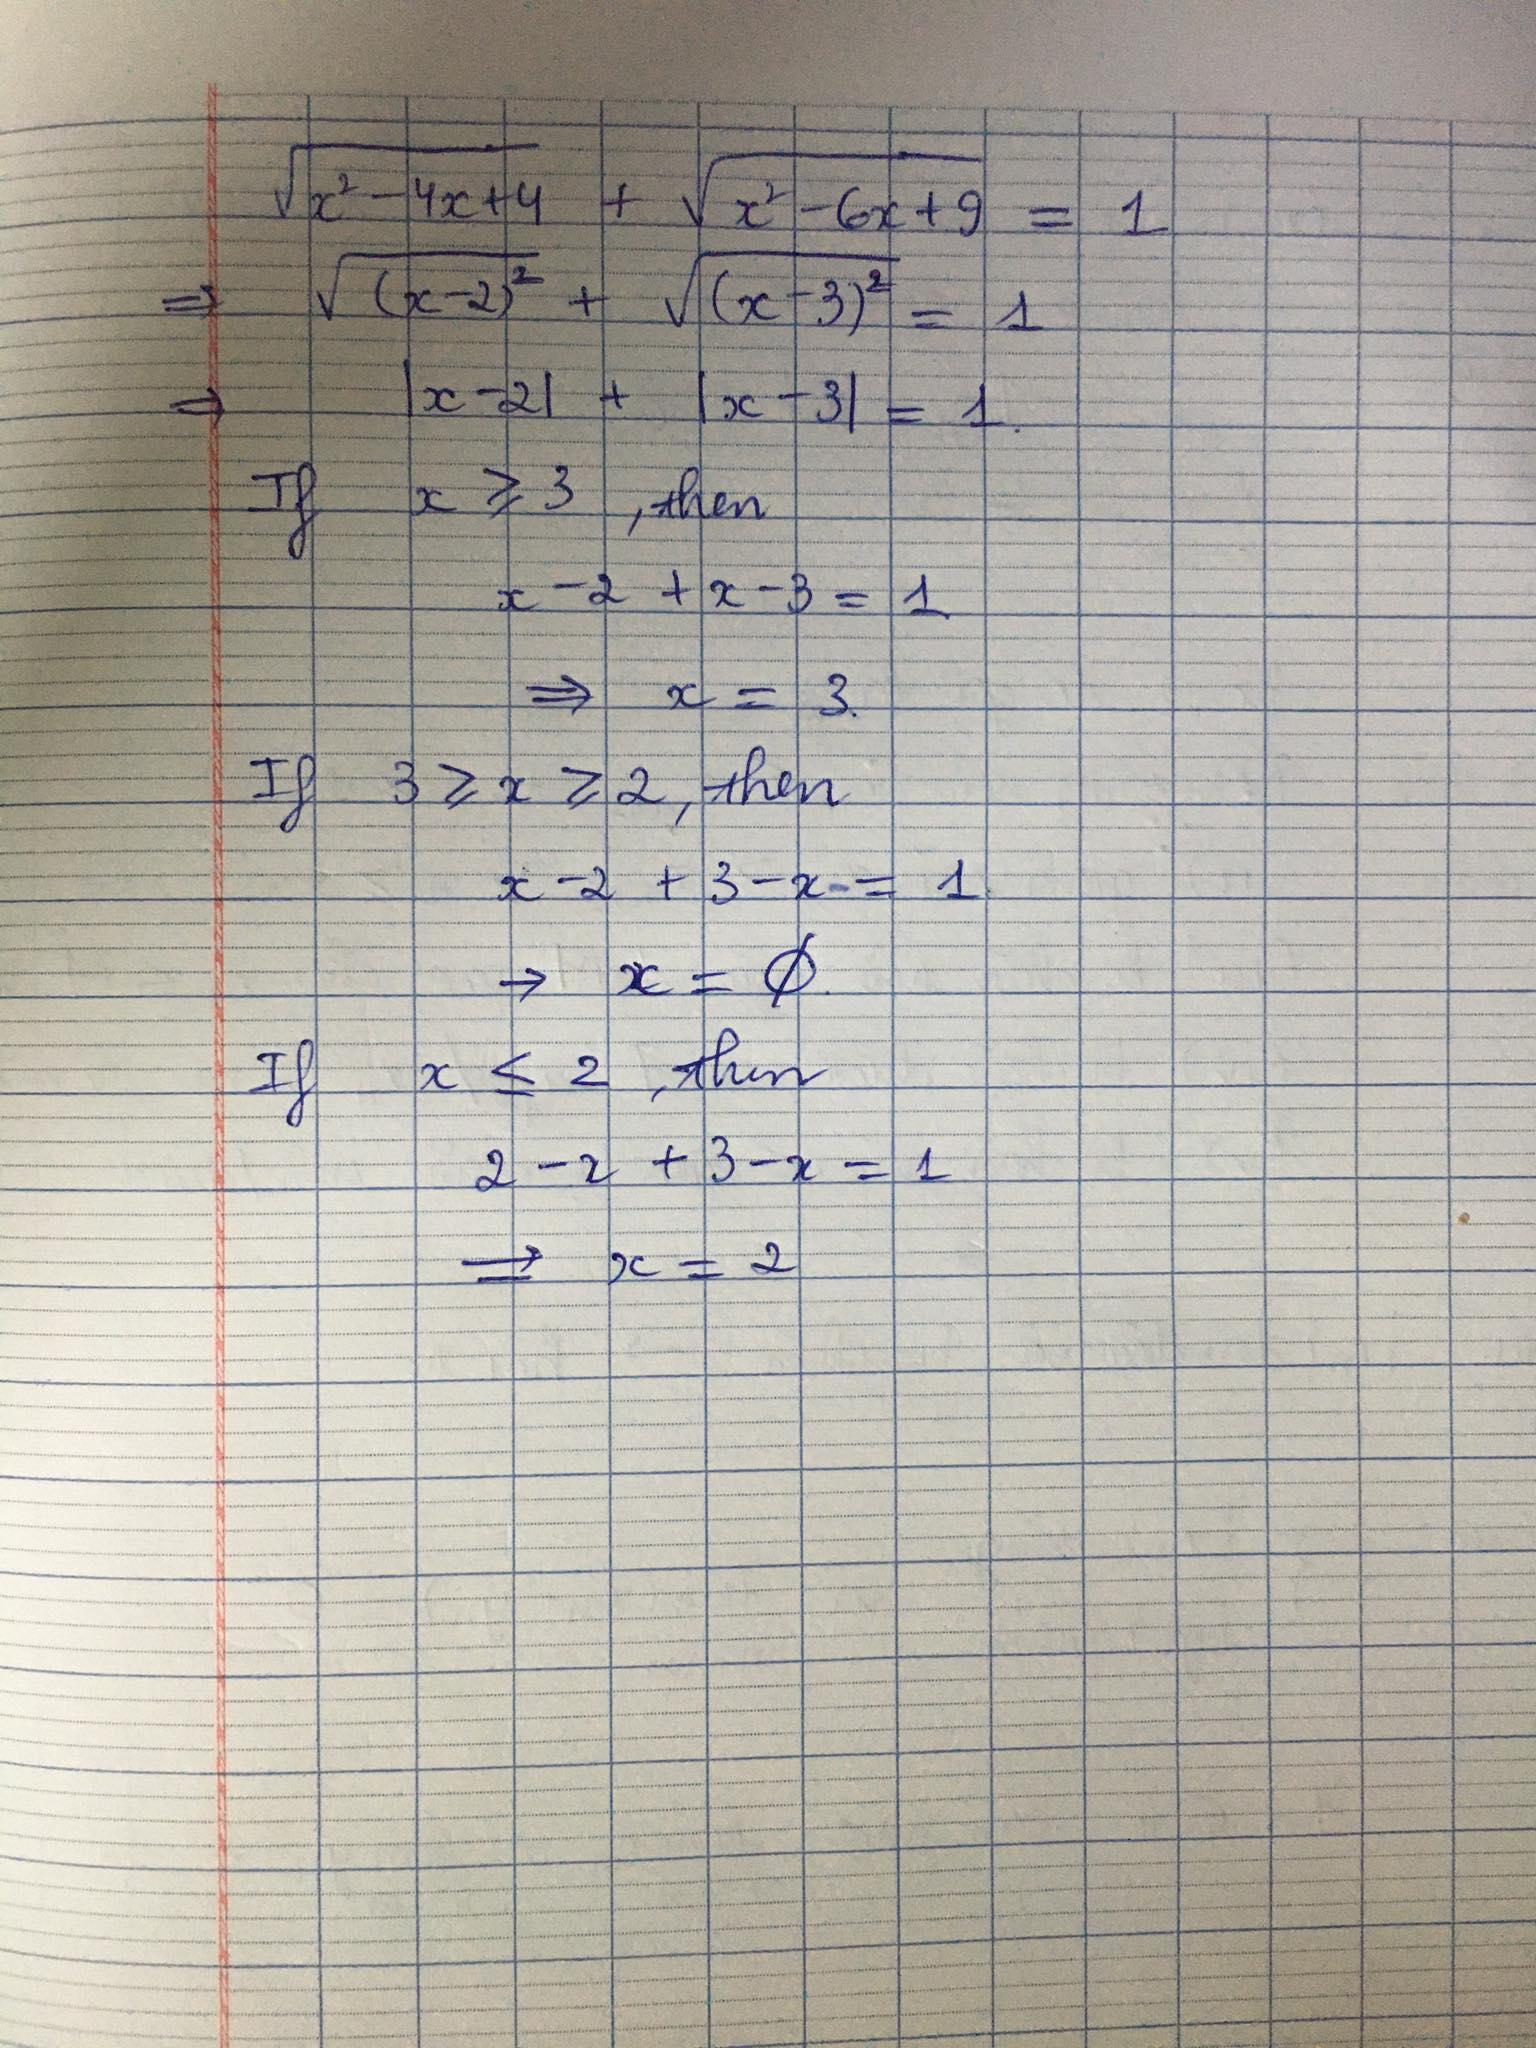 √(x² - 4x + 4) + √(x² - 6x + 9) = 1
⇒ √((x - 2)²) + √((x - 3)²) = 1
⇒ |x - 2| + |x - 3| = 1.
If x ⩾ 3, then
x - 2 + x - 3 = 1
⇒ x = 3.
If 3 ⩾ x ⩾ 2, then
x - 2 + 3 - x = 1.
→ x = ∅.
If x ≤ 2, then
2 - x + 3 - x = 1
⇒ x = 2